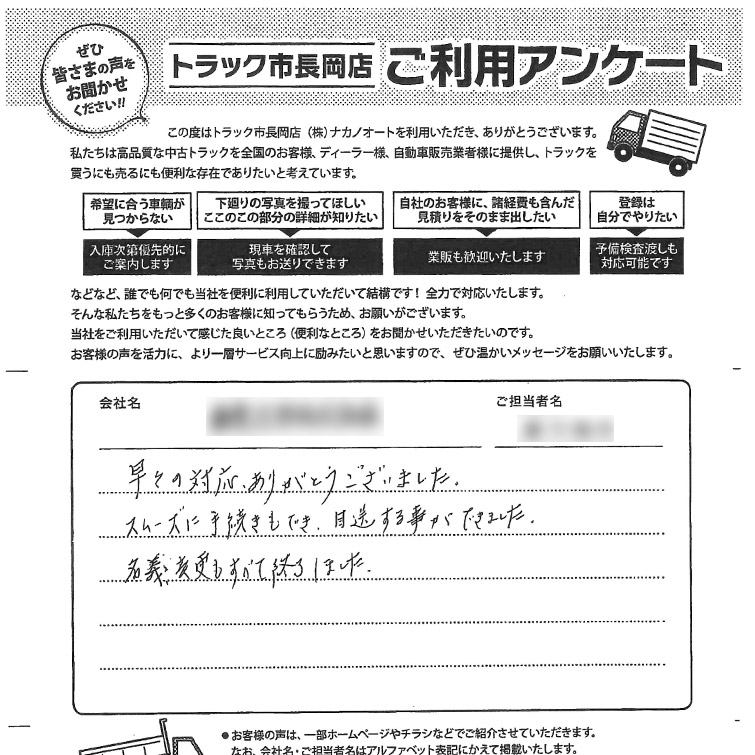 ぜひ
皆さまの声を
お聞かせ
ください!!
トラック市長岡店 ご利用アンケート
この度はトラック市長岡店(株)ナカノオートを利用いただき、ありがとうございます。
私たちは高品質な中古トラックを全国のお客様、ディーラー様、自動車販売業者様に提供し、トラックを
買うにも売るにも便利な存在でありたいと考えています。
希望に合う車輌が
見つからない
入庫次第優先的に
ご案内します
下廻りの写真を撮ってほしい
ここのこの部分の詳細が知りたい
現車を確認して
写真もお送りできます
自社のお客様に、諸経費も含んだ
見積りをそのまま出したい
業販も歓迎いたします
登録は
自分でやりたい
予備検査渡しも
対応可能です
などなど、誰でも何でも当社を便利に利用していただいて結構です!全力で対応いたします。
そんな私たちをもっと多くのお客様に知ってもらうため、お願いがございます。
当社をご利用いただいて感じた良いところ(便利なところ)をお聞かせいただきたいのです。
お客様の声を活力に、より一層サービス向上に励みたいと思いますので、ぜひ温かいメッセージをお願いいたします。
会社名
ご担当者名
早々の対応、ありがとうございました。
スムーズに手続きもでき、自送する事ができました。
名義変更もすべて終了しました。
●お客様の声は、一部ホームページやチラシなどでご紹介させていただきます。
なお、会社名・ご担当者名はアルファベット表記にかえて掲載いたします。